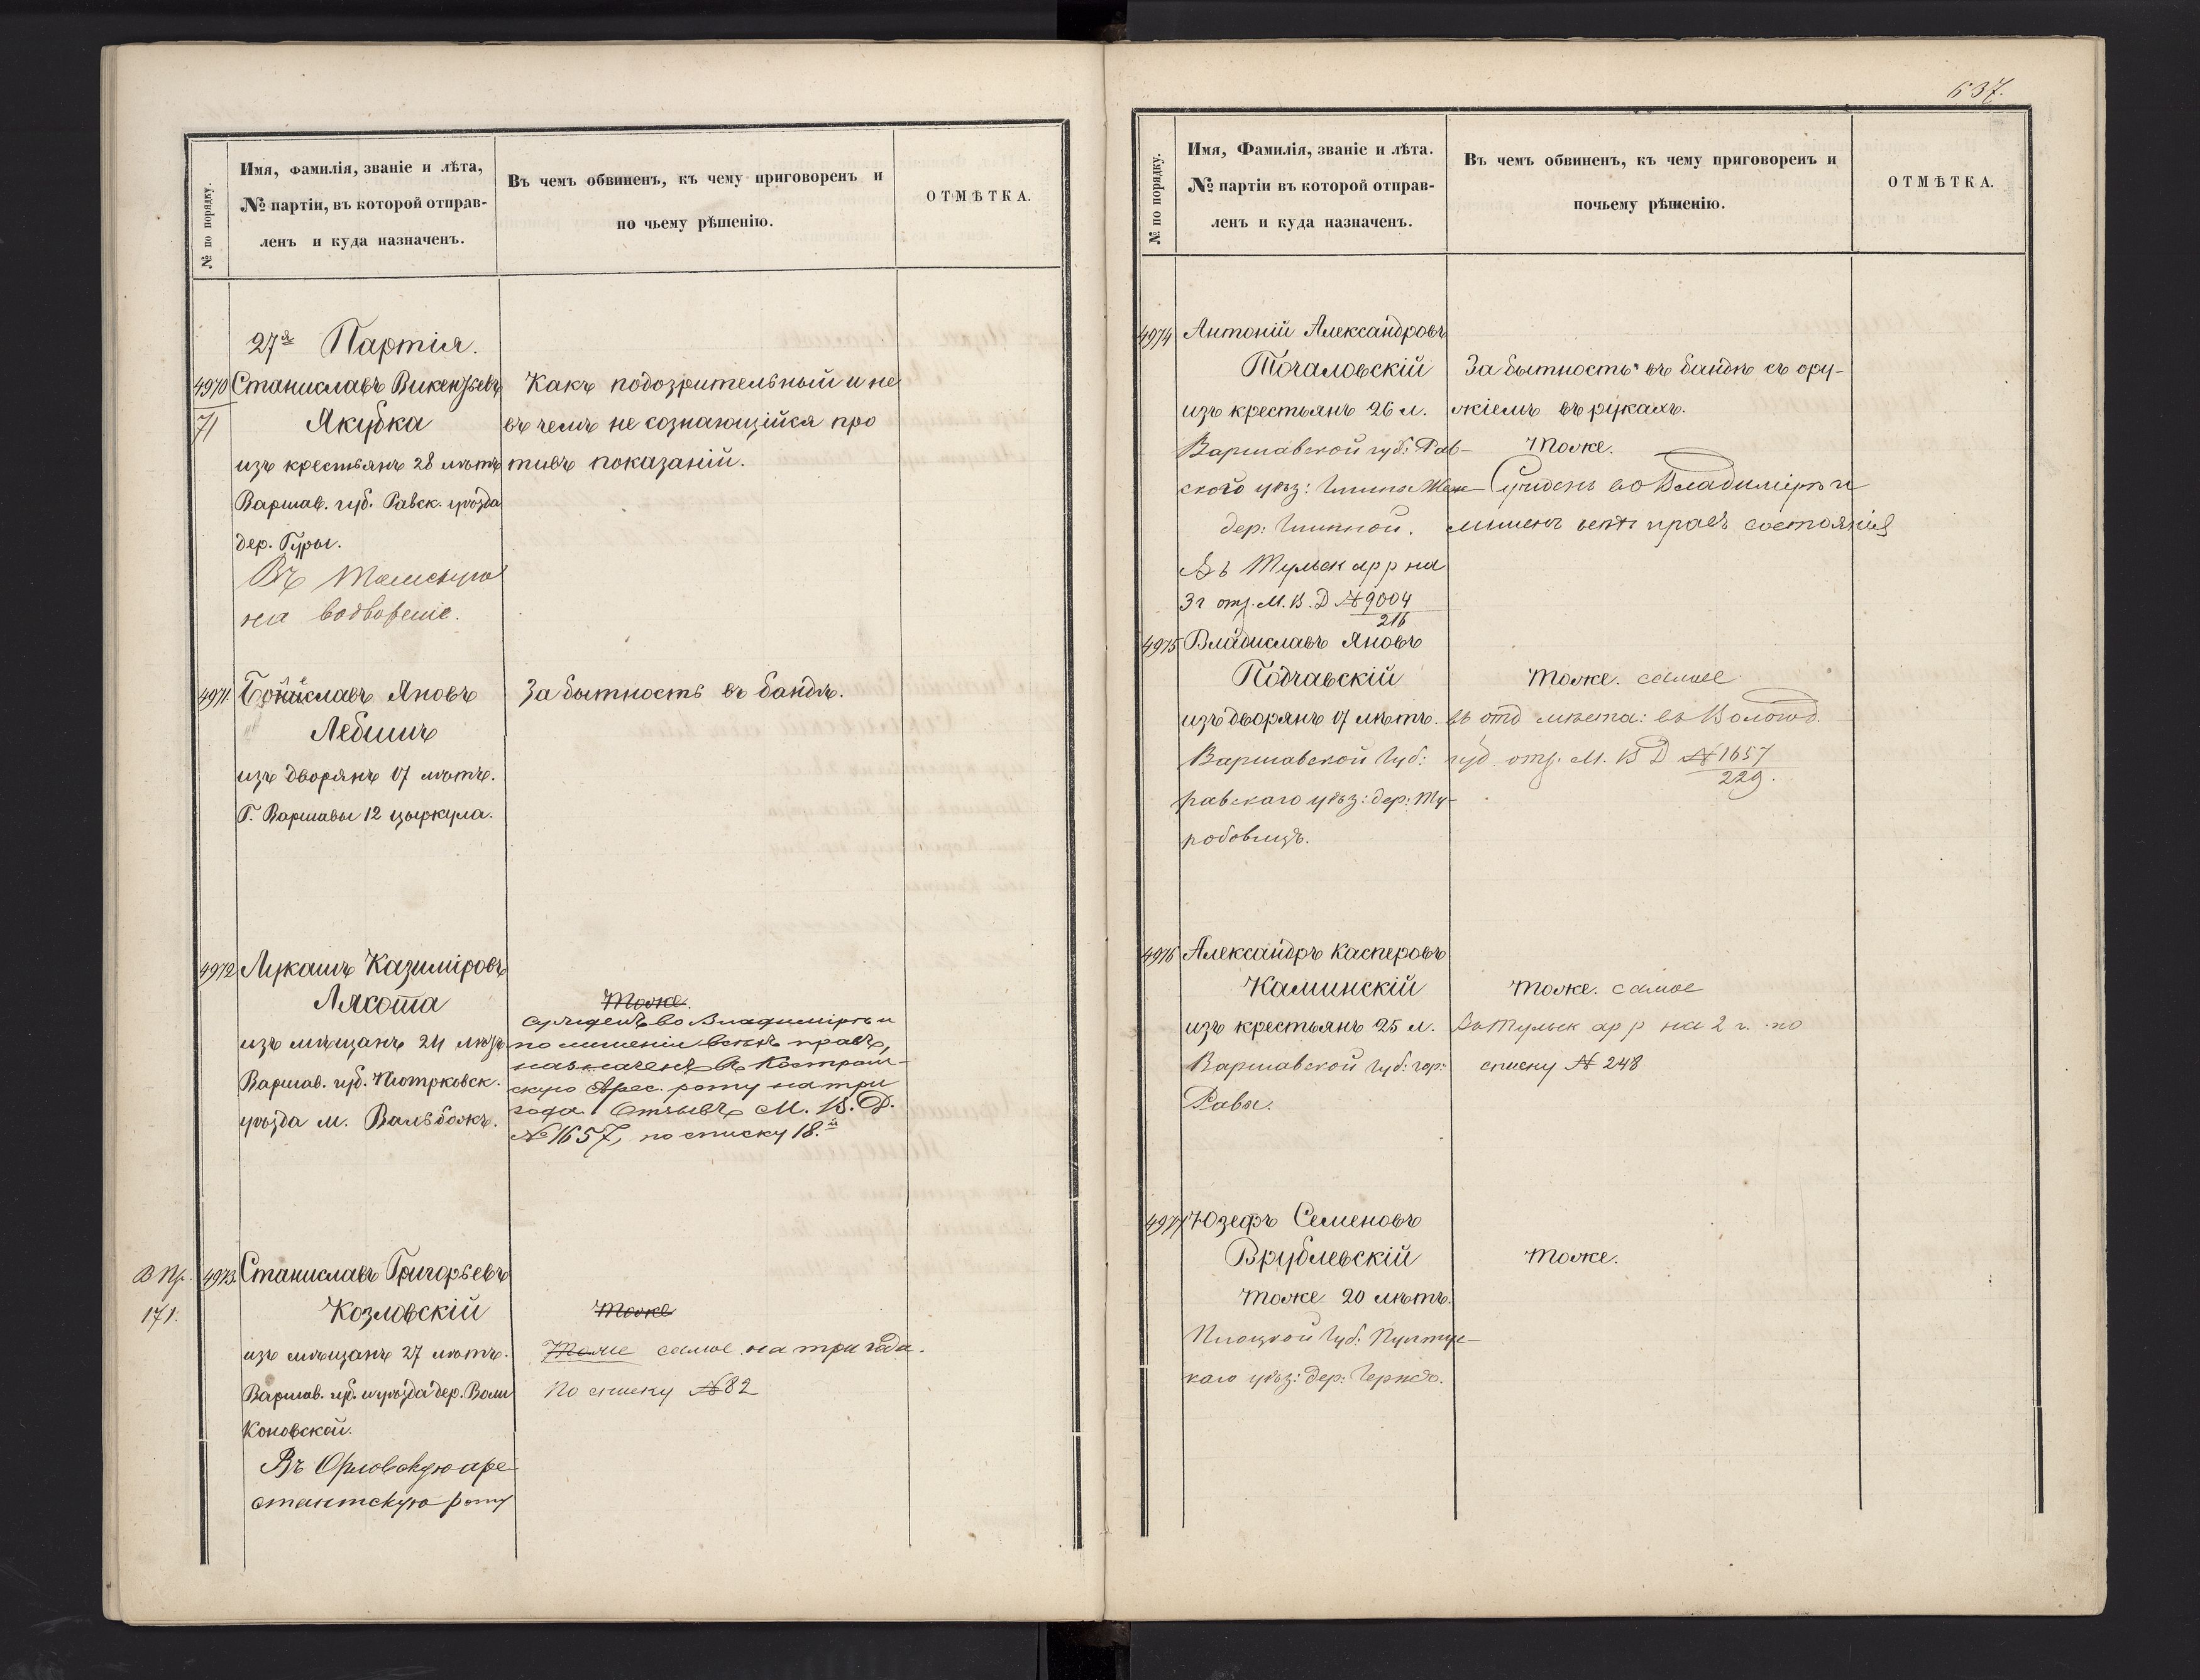 № по порядку.
Имя, фамилія, званіе и лѣта,
№ партіи, въ которой отправ-
ленъ и куда назначенъ.
Въ чемъ обвиненъ, къ чему приговоренъ и
по чьему рѣшенію.
ОТМѢТКА.
27я Партія.
4970
71
Станиславъ Викентьевъ
Якубка
изъ крестьянъ 28 лѣтъ
Варшав. губ. Равск. уѣзда
дер. Гуры.
Въ Томскую
на водвореніе.
Какъ подозрительный и не
въ чемъ не сознающійся про
тивъ показаній.
4971.
Яновъ
изъ дворянъ 17 лѣтъ.
Г. Варшавы 12 цыркула.
За бытность въ бандѣ.
4972
Лукашъ Казиміровъ
Лякота
изъ мѣщанъ 24 лѣтъ
Варшав. губ. Піотрковск.
уѣзда м. Вальбожъ.
Тоже.
сужденъ во Владимірѣ и
по лишеніи всѣхъ правъ,
назначенъ въ Костром-
скую Арес. роту на три
года. Отзывъ М. В. Д.
№ 1657, по списку 18.й
В Пр.
171.
4973.
Станиславъ Григорьевъ
Козловскій
изъ мѣщанъ 27 лѣтъ.
Варшав. губ. и уѣзда дер. Воли
Коновской.
Въ Орловскую аре-
стантскую роту
Тоже
Тоже самое на три года.
По списку № 82
637.
№ по порядку.
Имя, Фамилія, званіе и лѣта.
№ партіи въ которой отправ-
ленъ и куда назначенъ.
Въ чемъ обвиненъ, къ чему приговоренъ и
почьему рѣшенію.
ОТМѢТКА.
4974
Антоній Александровъ
Точаловскій
изъ крестьянъ 26 л.
Варшавской губ: Рав-
ского уѣз: Гмины
дер:
Въ Тульск ар р на
3 г отз. М. В. Д № 9004
216
За бытность въ бандѣ съ ору-
жіемъ въ рукахъ.
Тоже.
Сужденъ во Владимірѣ и
лишенъ всѣхъ правъ состоянія
4975
Владиславъ Яновъ
Подчавскій
изъ дворянъ 17 лѣтъ.
Варшавской Губ:
равскаго уѣз: дер: Ту-
робовицъ.
Тоже. самое
въ отд мѣста: въ Вологод.
губ отз. М. В Д № 1657
229.
4976
Александръ Касперовъ
Каминскій
изъ крестьянъ 25 л.
Варшавской Губ: гор:
Равы.
Тоже. самое
Въ Тульск ар р на 2 г. по
списку № 248
4977
Юзефъ Семеновъ
Врублевскій
тоже 20 лѣтъ.
Плоцкой Губ: Пултус-
каго уѣз: дер:
Тоже.